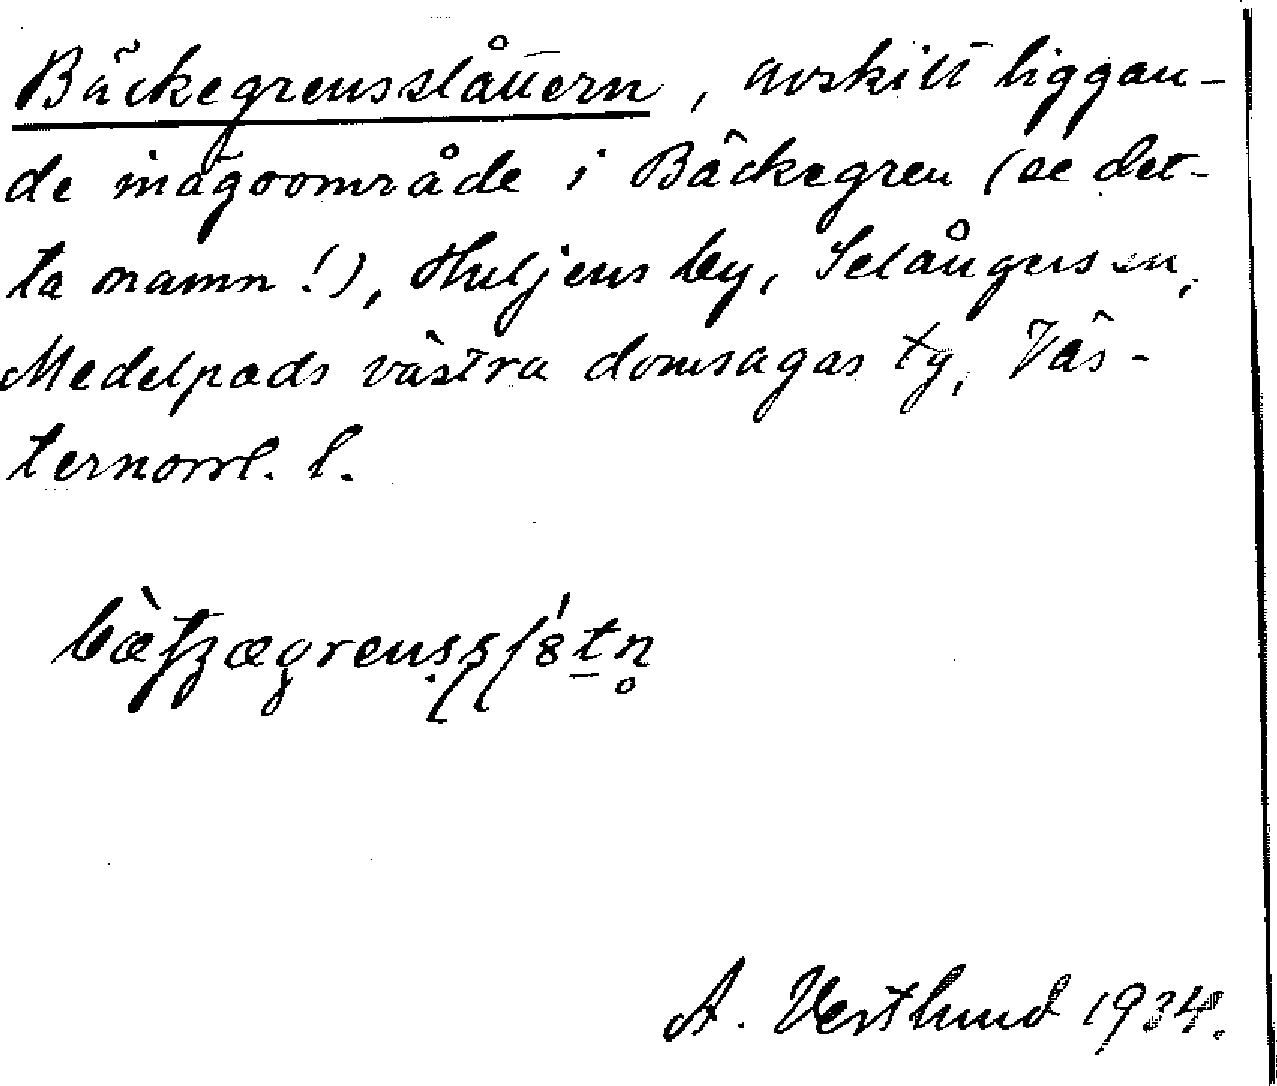 Bäckegrensslåttern, avskilt liggan-
de inägoområde i Bäckegren (se det-
ta namn!), Huljens by, Selångers sn,
Medelpads västra domsagas tg, Väs-
ternorrl. l.
A. Vestlund 1934.